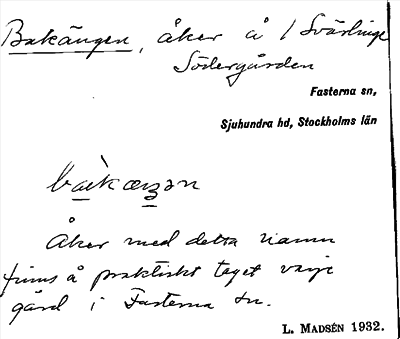 Bakängen, åker å / Svärlinge
Södergården
Fasterna sn,
Sjuhundra hd, Stockholms län
Åker med detta namn
finns å praktiskt taget varje
gård i Fasterna sn.
L. MADSÉN 1932.